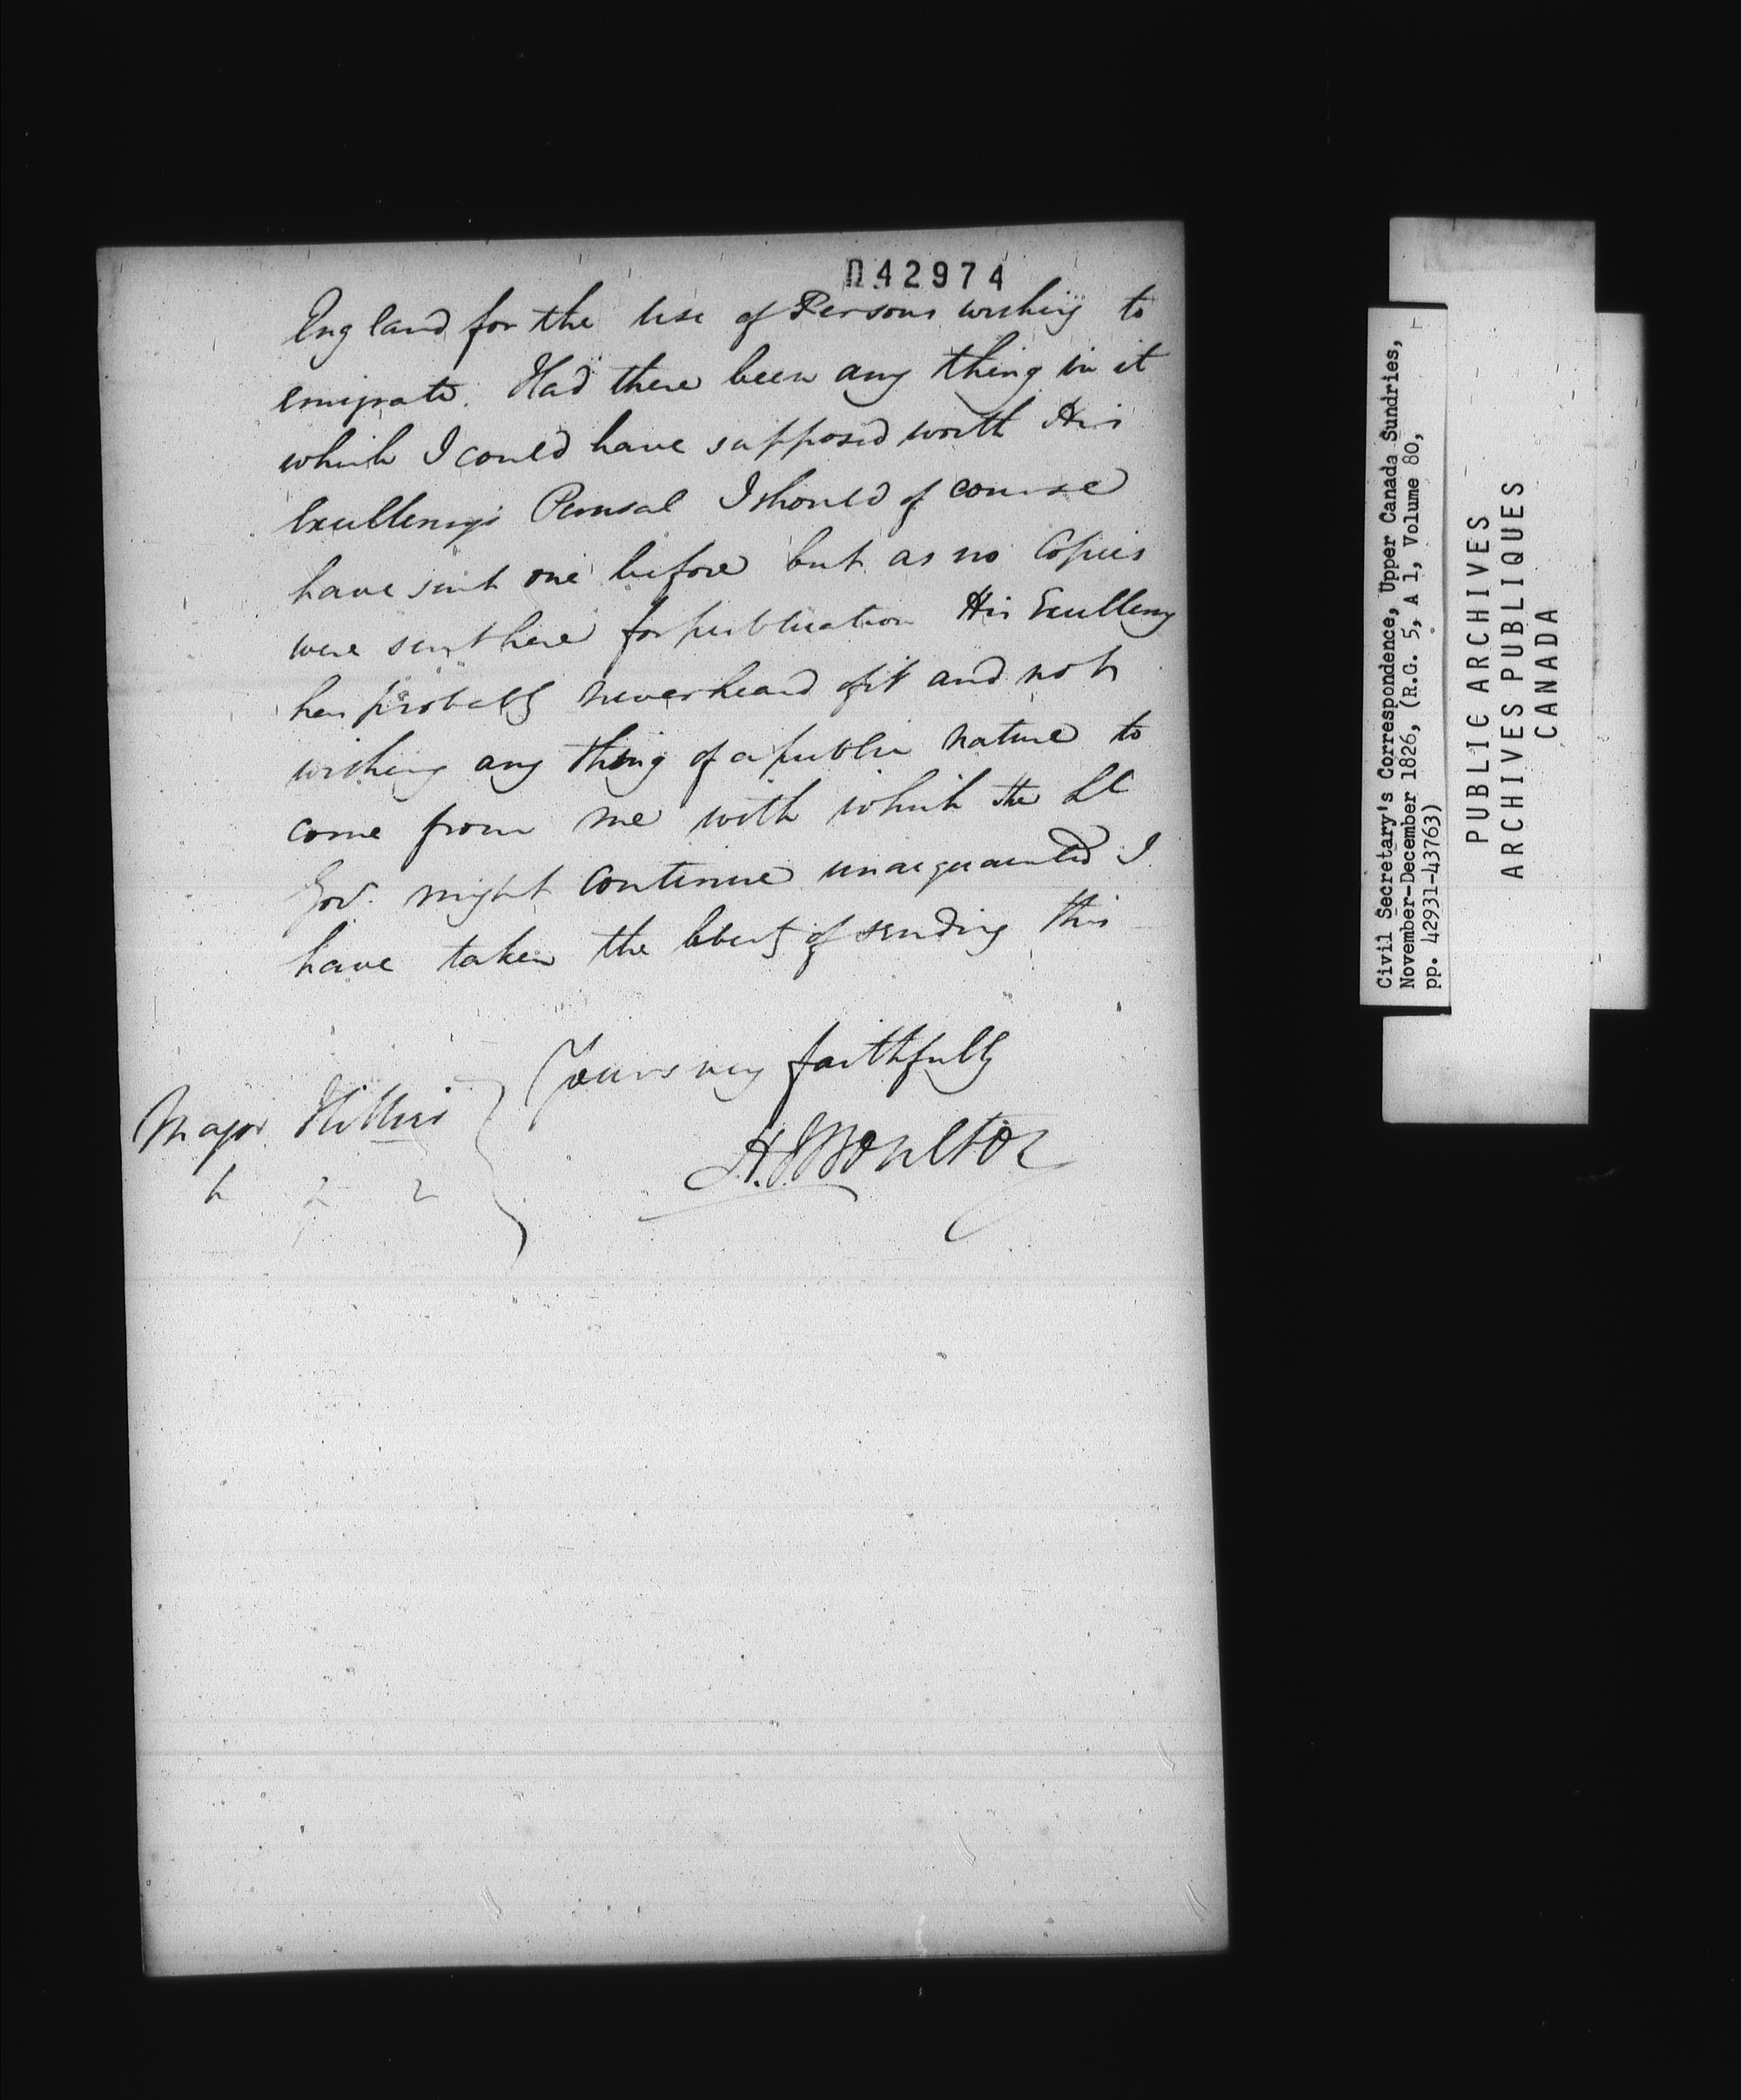 042974
England for the use of Persons wishing to
emigrate. Had there been any thing in it
which I could have supposed worth His
Excellency's Perusal I should of course
have sent one before but as no Copies
were sent here for publication His Excellency
has probably never heard of it and not
wishing any thing of a public nature to
come from me with which the Lt
Gov. might continue unacquainted I
have taken the liberty of sending this
Yours very faithfully
H. J. Boulton
Major Hillier
Civil Secretary's Correspondence, Upper Canada Sundries,
November-December 1826, (R.G. 5, A 1, Volume 80,
pp. 42931-43763)
PUBLIC ARCHIVES
ARCHIVES PUBLIQUES
CANADA